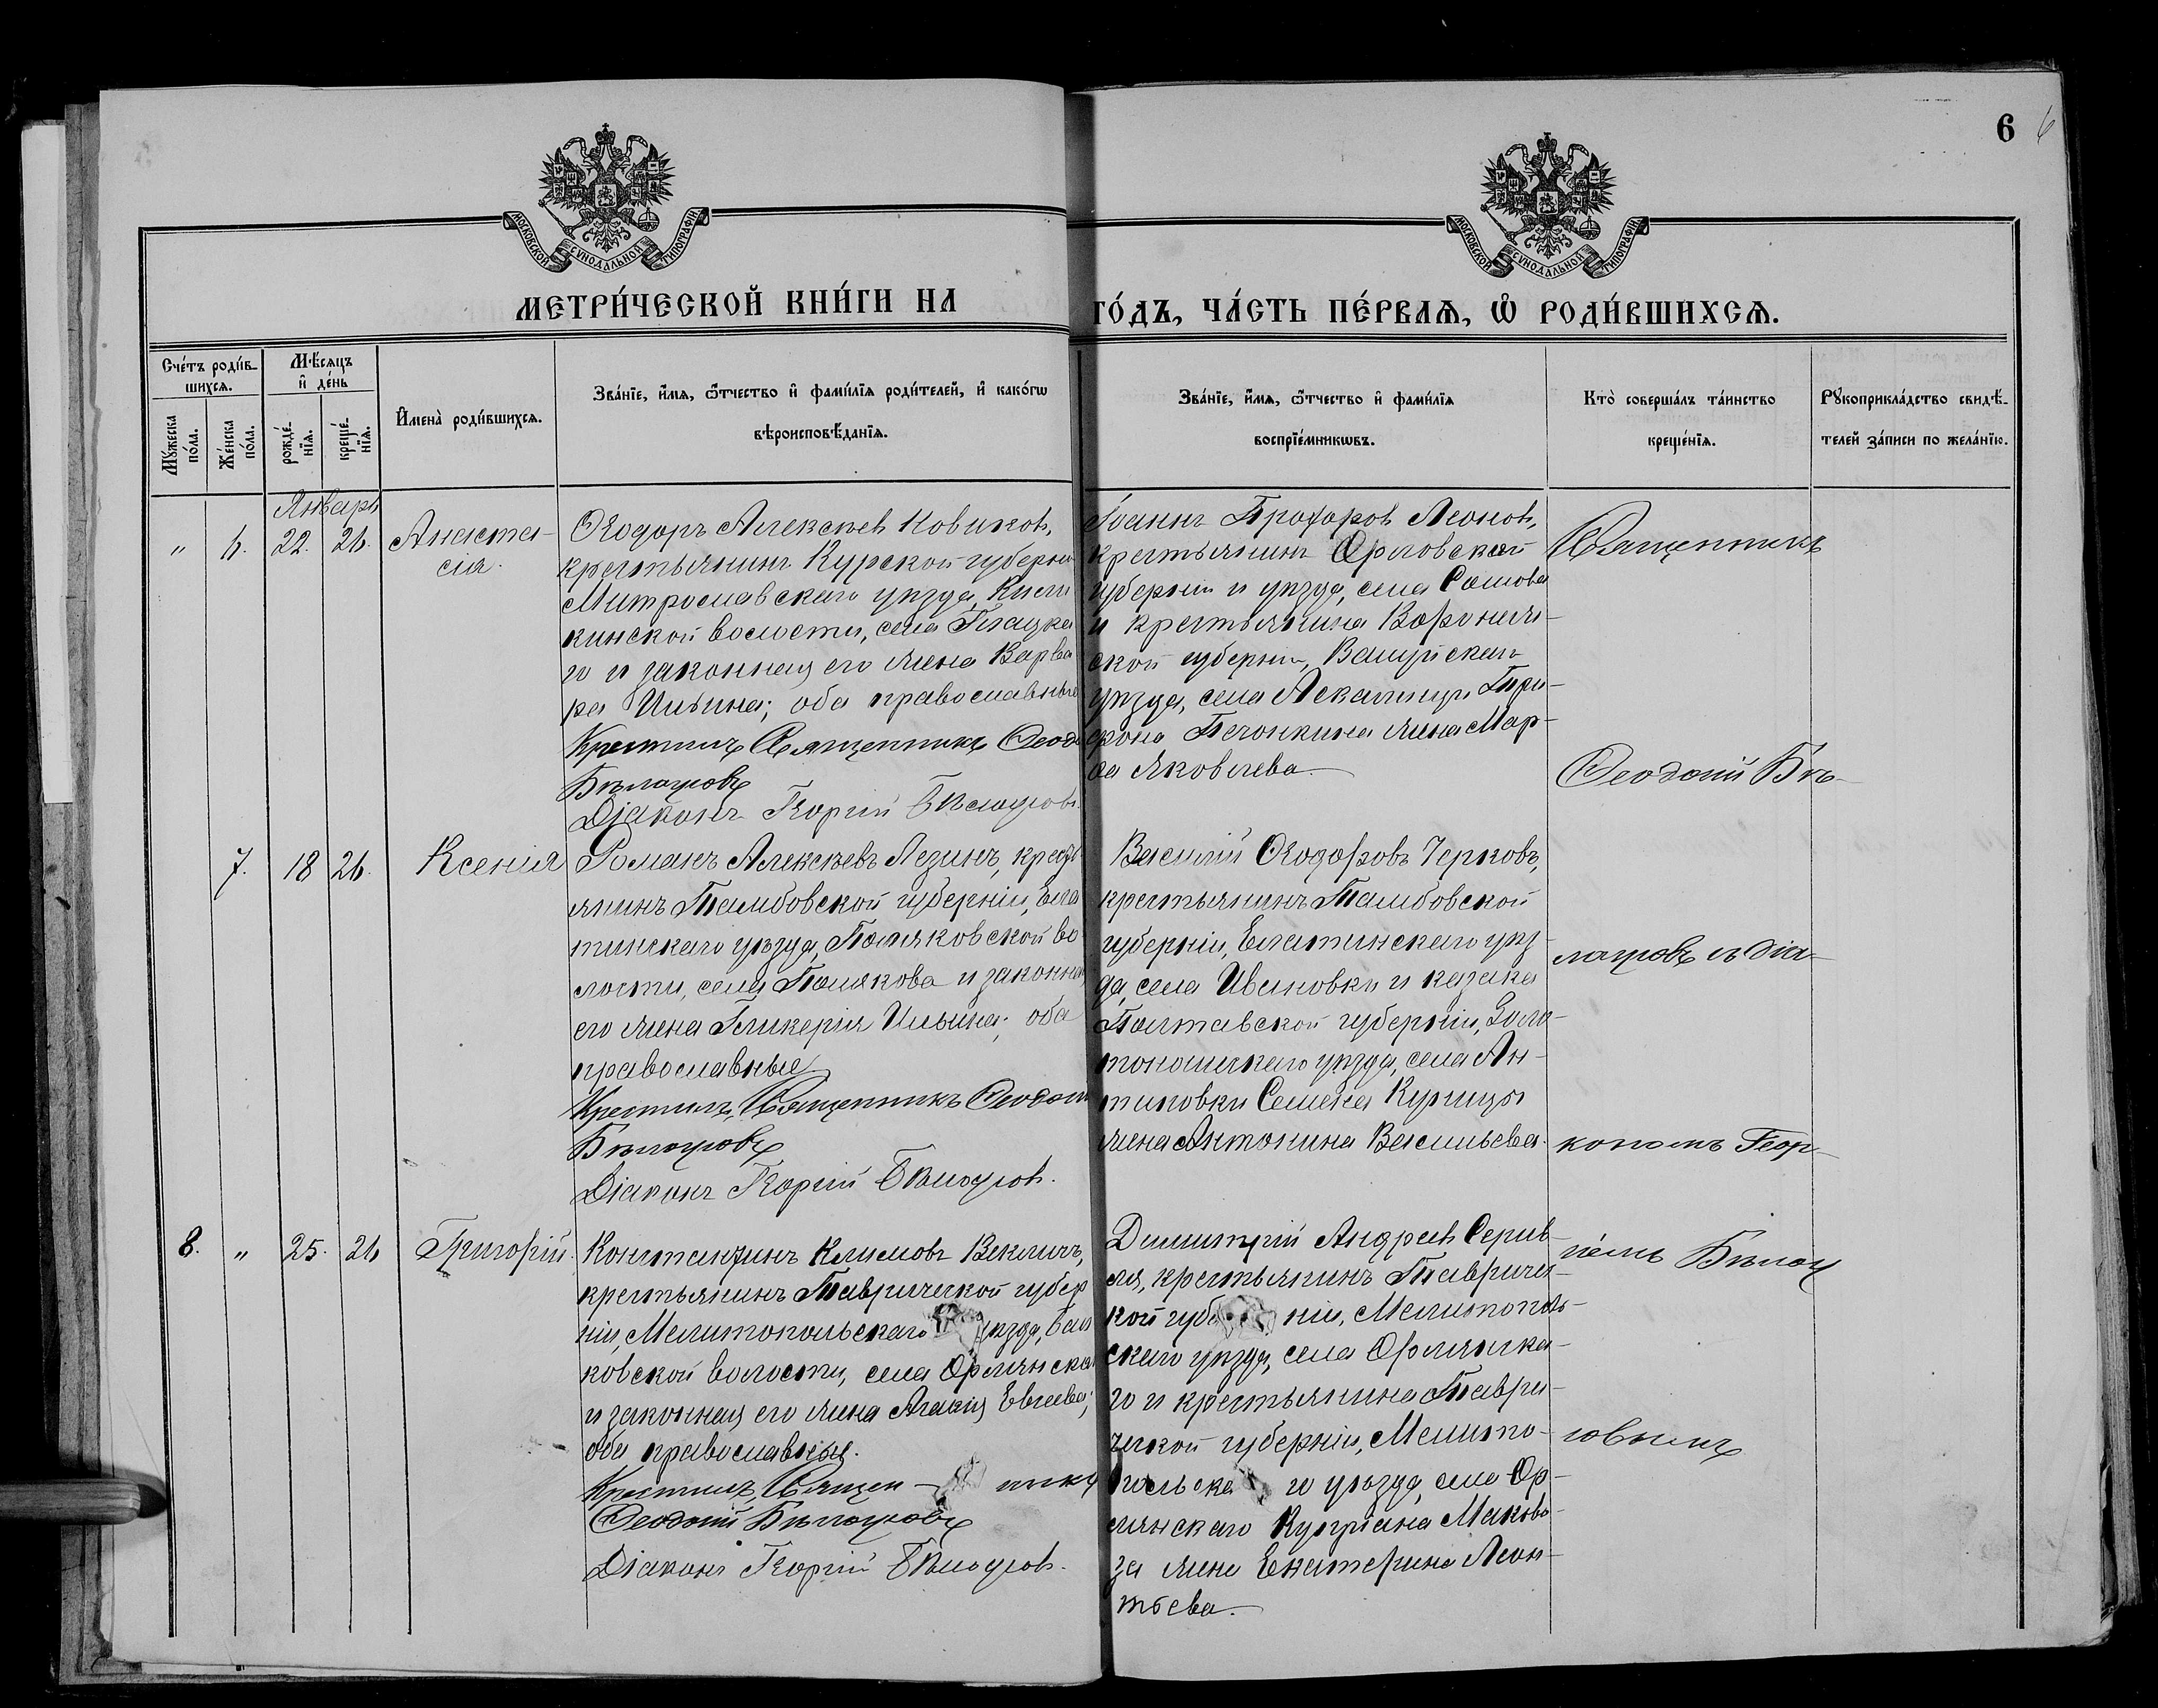 6 6
МОСКОВСКОЙ СѴНОДАЛЬНОЙ ТИПОГРАФІИ
МОСКОВСКОЙ СѴНОДАЛЬНОЙ ТИПОГРАФІИ
МЕТРИ́ЧЕСКОЙ КНИ́ГИ НА ГО́ДЪ, ЧА́СТЬ ПЕ́РВАѦ, Ѡ҆ РОДИ́ВШИХСѦ.
Сче́тъ роди́в-
шихсѧ.
Мѣ́сѧцъ
и҆ де́нь
Мꙋ́жеска
по́ла.
Же́нска
по́ла.
рожде́-
нїѧ.
креще́-
нїѧ.
И҆мена̀ роди́вшихсѧ.
Зва́нїе, и҆́мѧ, ѻ҆́тчество и҆ фами́лїѧ роди́телей, и҆ како́гѡ
вѣроисповѣ́данїѧ.
Зва́нїе, и҆́мѧ, ѻ҆́тчество и҆ фами́лїѧ
воспрїе́мникѡвъ.
Кто̀ соверша́лъ та́инство
креще́нїѧ.
Рꙋкоприкла́дство свидѣ́-
телей за́писи по жела́нїю.
Январь
" 6. 22. 26. Анаста-
сія.
Ѳеодоръ Алексѣевъ Новиковъ,
крестьянинъ Курской губерніи
уѣзда,
кинской волости, села
го и законная его жена Варва
ра Ильина; оба православные
Крестилъ Священникъ Ѳеодосій
Бѣлоусовъ
Діаконъ Георгій Бѣлоусовъ.
Іоаннъ Прохоровъ Леоновъ,
крестьянинъ Орловской
губерніи и уѣзда, села
и крестьянина Воронеж-
ской губерніи, Валуйскаго
уѣзда, села Три-
фона Печонкина жена Мар-
фа Яковлева.
7. 18 26. Ксенія
Романъ Алексѣевъ Лезинъ, кресть
янинъ Тамбовской губерніи, Ела
тинскаго уѣзда, Поляковской во
лости, села Полякова и законная
его жена Гликерія Ильина; оба
православные
Крестилъ Священникъ Ѳеодосій
Бѣлоусовъ
Діаконъ Георгій Бѣлоусовъ.
Василій Ѳеодоровъ Черковъ,
крестьянинъ Тамбовской
губерніи, Елатинскаго уѣз-
да, села Ивановки и казака
Полтавской губерніи, Золо-
тоношскаго уѣзда, села Ан-
типовки Семена Курицы
жена Антонина Васильева.
8. " 25. 26 Григорій.
Константинъ Климовъ Векличъ,
крестьянинъ Таврической губер
ніи, Мелитопольскаго уѣзда, Бал
ковской волости, села Орлянскаго
и законная его жена Агафія Евсеева;
оба православные.
Крестилъ Священ- никъ
Ѳеодосій Бѣлоусовъ
Діаконъ Георгій Бѣлоусовъ.
Димитрій Андреевъ
крестьянинъ Тавричес-
кой губерніи, Мелитополь-
скаго уѣзда, села Орлянска-
го и крестьянина Таври-
ческой губерніи, Мелито-
польска го уѣзда, села Ор-
лянскаго Купріана Маково-
за жена Екатерина Леон-
тьева.
Священникъ
Ѳеодосій Бѣ-
лоусовъ съ діа-
кономъ Геор-
гіемъ Бѣлоу
совымъ